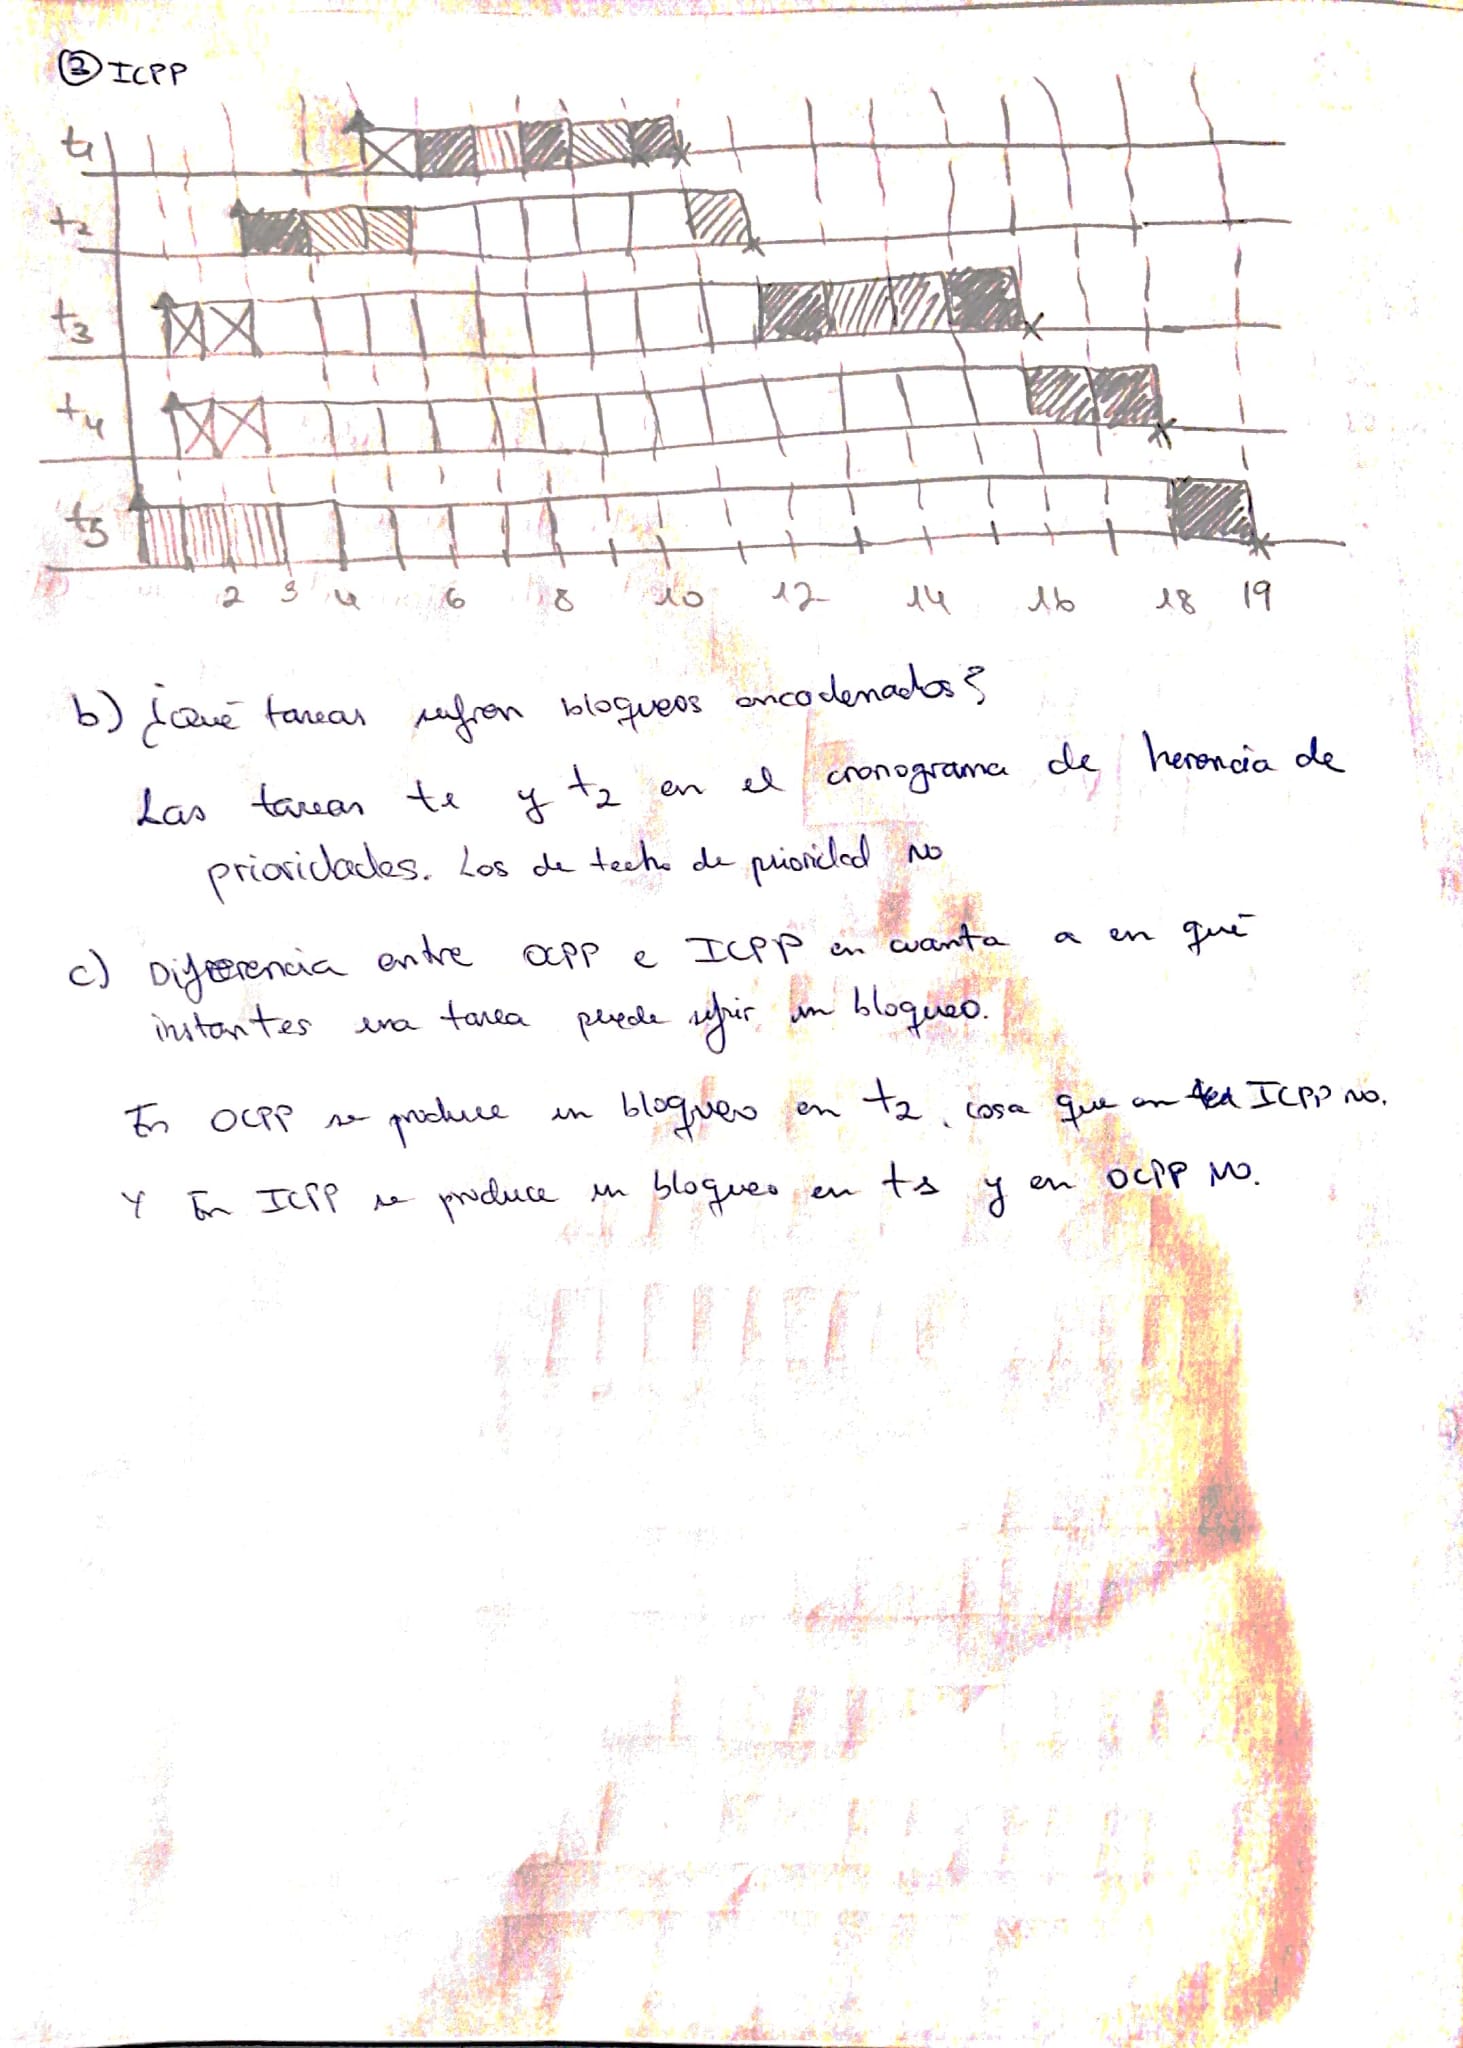 ③ ICPP
t1
t2
t3
t4
t5
2 3 4 6 8 10 12 14 16 18 19
b) ¿Qué tareas sufren bloqueos encadenados?
Las tareas t1 y t2 en el cronograma de herencia de
prioridades. Los de techo de prioridad no
c) Diferencia entre OCPP e ICPP en cuanta a en qué
instantes una tarea puede sufrir un bloqueo.
En OCPP se produce un bloqueo en t2, cosa que en ICPP no.
Y En ICPP se produce un bloqueo en y en OCPP no.